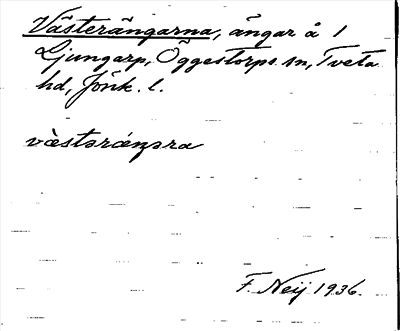 Västerängarna, ängar å 1
Ljungarp, Öggestorps sn, Tveta
hd, Jönk. l.
væ̀stəráŋəra
F. Neij 1936.